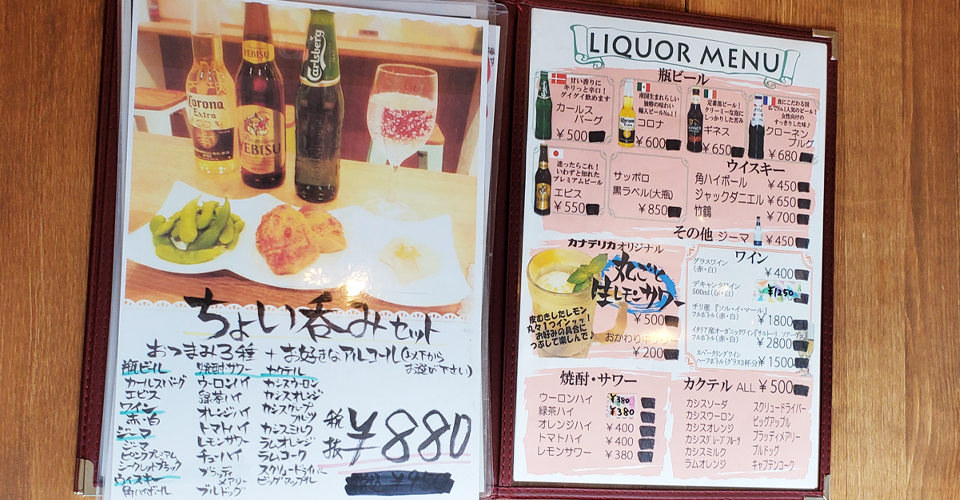 Corona
Extra
YEBISU
Carlsberg
ちょい呑みセット
おつまみ3種 + お好きなアルコール(以下からお選び下さい)
瓶ビール
カールスバーグ
エビス
ワイン
赤・白
ジーマ
ジーマ
ピンクプレミアム
シークレットブラック
ウイスキー
角ハイボール
焼酎サワー
ウーロンハイ
緑茶ハイ
オレンジハイ
トマトハイ
レモンサワー
チューハイ
ブラッディメアリー
ブルドッグ
カクテル
カシスウーロン
カシスオレンジ
カシスグレープフルーツ
カシスミルク
ラムオレンジ
ラムコーク
スクリュードライバー
ビッグアップル
税抜 ¥880
LIQUOR MENU
瓶ビール
甘い香りに
キリっと辛口!
グイグイ飲めます
カールスバーグ
¥500
南国生まれらしい
独特の味わい
輸入ビールNo.1!
コロナ
¥600
定番黒ビール!
クリーミーな泡に
しっかりした苦み
ギネス
¥650
食にこだわる国
仏で人気のビール!
女性向けの
すっきりした味♪
クローネンブルグ
¥680
迷ったらこれ!
いわずと知れた
プレミアムビール
エビス
¥550
サッポロ
黒ラベル(大瓶)
¥850
ウイスキー
角ハイボール ¥450
ジャックダニエル ¥650
竹鶴 ¥700
その他 ジーマ ¥450
カナデリカオリジナル
丸ごと
生レモンサワー
¥500
皮むきしたレモン
丸々1つインッッ!
お好みの具合に
つぶして楽しんで♪
おかわり
¥200
ワイン
グラスワイン
(赤・白) ¥400
デキャンタワイン
500ml(赤・白) ¥1250
チリ産『ソル・イ・マール』
フルボトル(赤・白) ¥1800
イタリア産オーガニックワイン
フルボトル(赤・白) ¥2800
スパークリングワイン
ハーフボトル(グラス3杯分) ¥1500
焼酎・サワー
ウーロンハイ ¥380
緑茶ハイ ¥380
オレンジハイ ¥400
トマトハイ ¥400
レモンサワー ¥380
カクテル ALL ¥500
カシスソーダ
カシスウーロン
カシスオレンジ
カシスグレープフルーツ
カシスミルク
ラムオレンジ
スクリュードライバー
ビッグアップル
ブラッディメアリー
ブルドッグ
キャプテンコーク